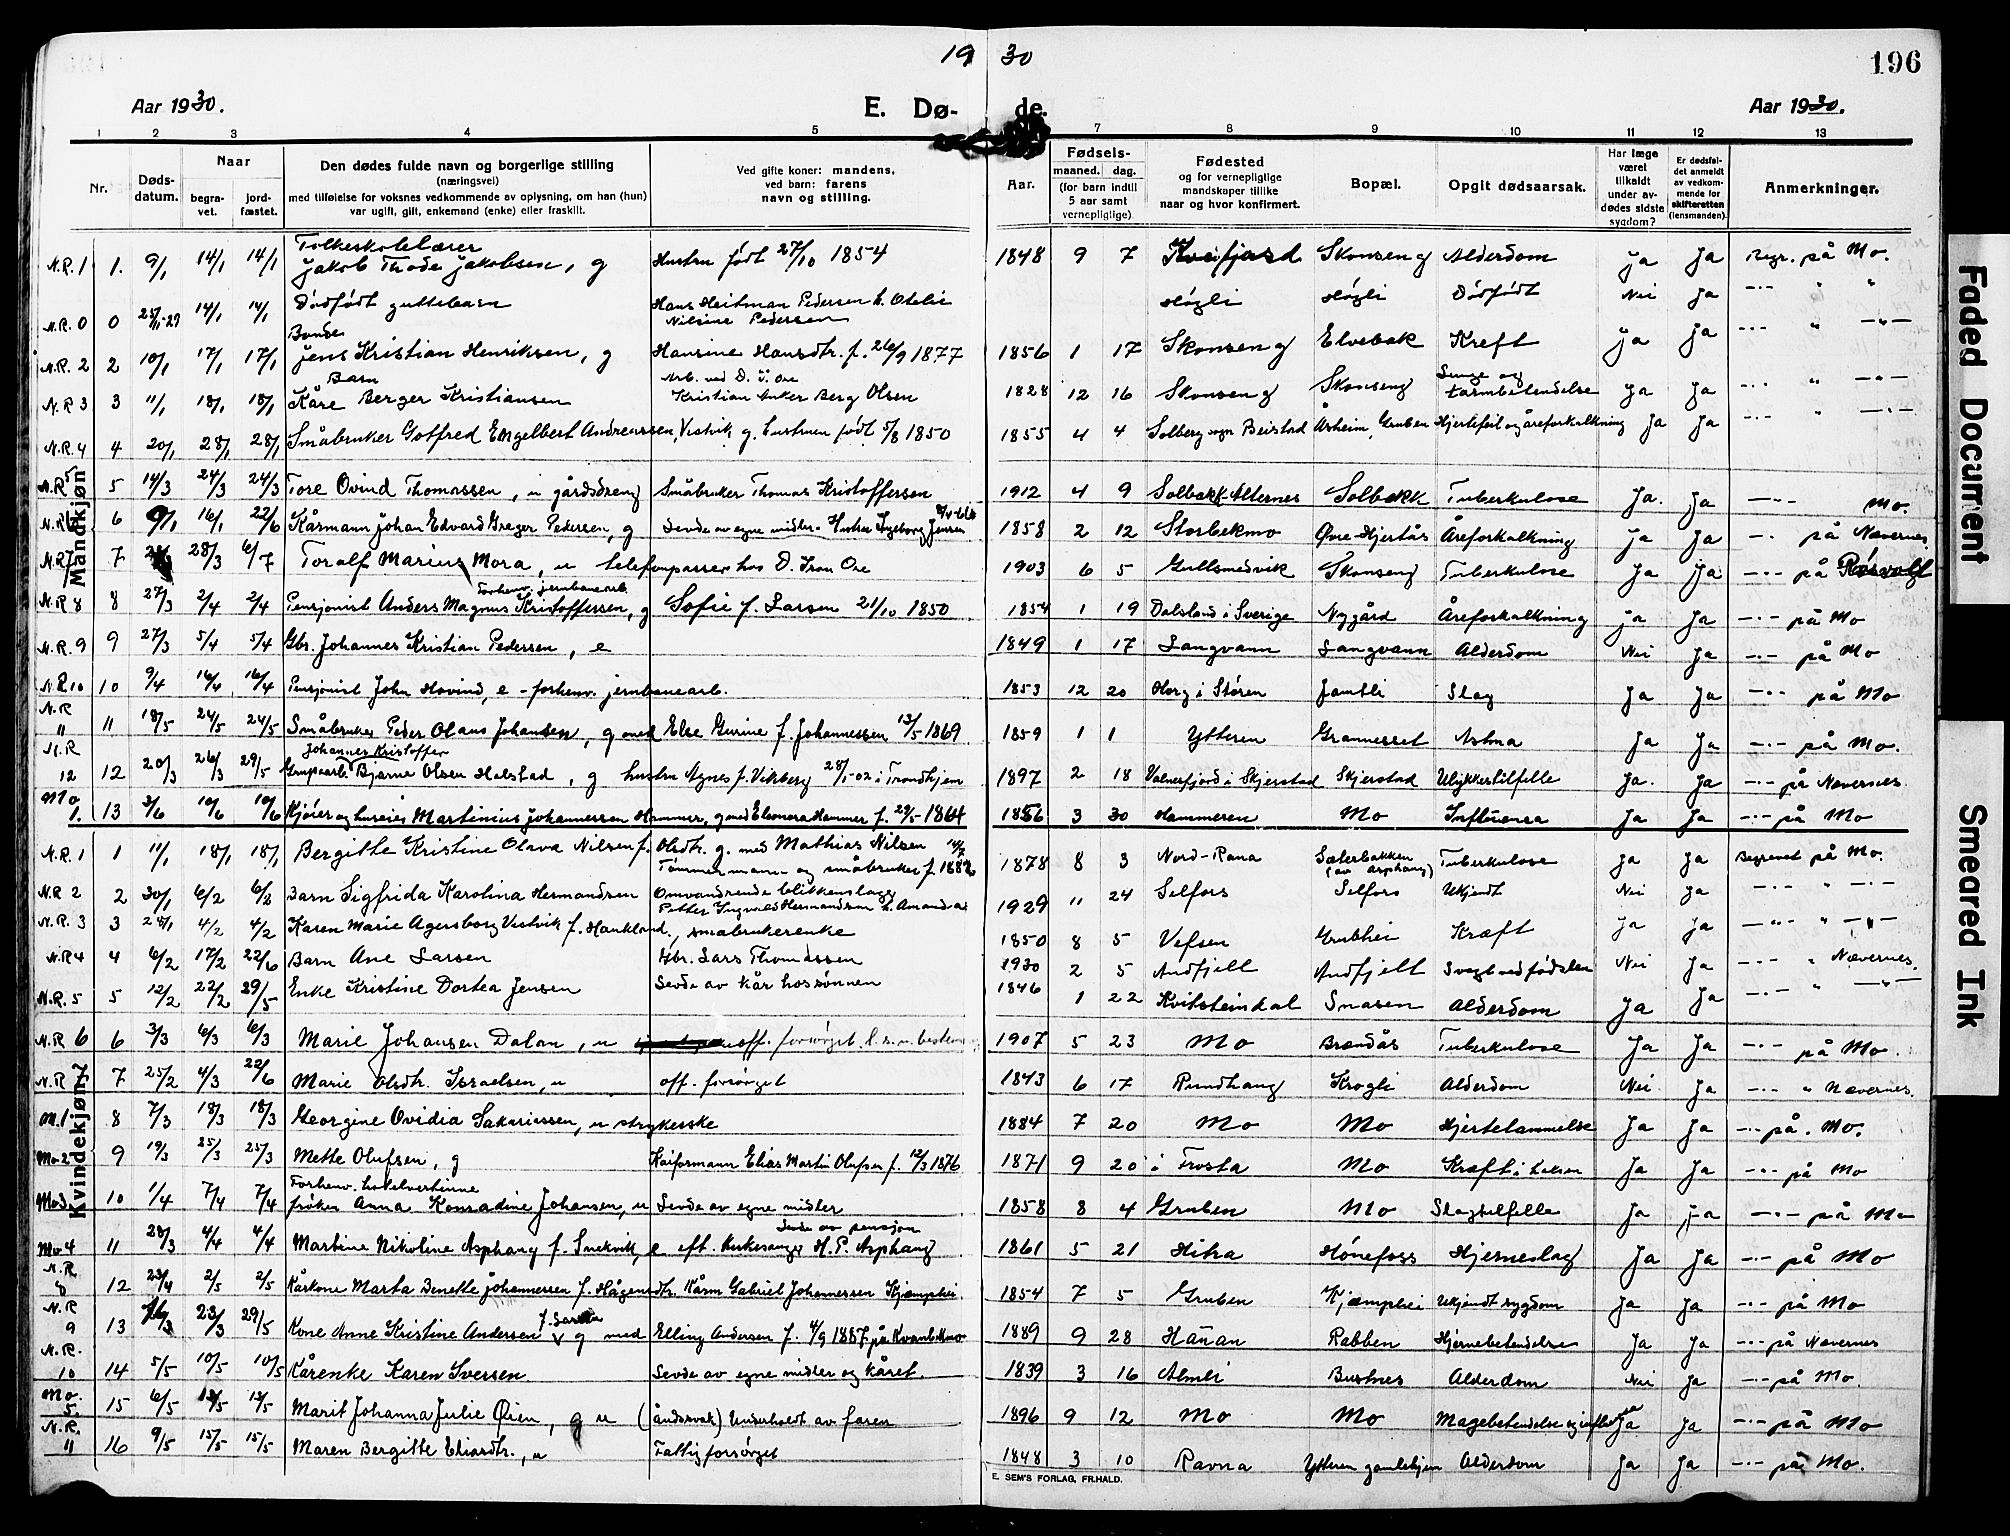 19 30
196
Aar 1930.
E. Dø-
de.
Aar 1930.
1 2 3 4 5 7 8 9 10 11 12 13
Nr.
Døds-
datum.
Naar
begra-
vet.
jord-
fæstet.
Den dødes fulde navn og borgerlige stilling
(næringsvei)
med tilføielse for voksnes vedkommende av oplysning, om han (hun)
var ugift, gift, enkemand (enke) eller fraskilt.
Ved gifte koner: mandens,
ved barn: farens
navn og stilling.
Aar.
Fødsels-
maaned. dag.
(for barn indtil
5 aar samt
vernepligtige)
Fødested
og for vernepligtige
mandskaper tillike
naar og hvor konfirmert.
Bopæl.
Opgit dødsaarsak.
Har læge
været
tilkaldt
under av-
dødes sidste
sygdom?
Er dødsfal-
det anmeldt
av vedkom-
mende for
skifteretten
(lensmanden).
Anmerkninger.
Mandkjøn
Folkeskolelærer
N.R. 1 1. 9/1 14/1 14/1 Jakob Thode Jakobsen, g Hustru født 27/10 1854 1848 9 7 Kvæfjord Skonseng Alderdom Ja Ja Begr. på Mo.
N.R. 0 0 25/11-29 14/1 14/1 Dødfødt guttebarn Hans Heitman Pedersen h. Otelie
Nilsine Pedersen Høgli Høgli Dødfødt Nei Ja -"- " "
Bonde
N.R. 2 2 10/1 17/1 17/1 Jens Kristian Henriksen, g Hansine Hansdtr. f. 26/9 1877 1856 1 17 Skonseng Elvebak Kreft Ja Ja -"- " -"-
Barn Arb. ved D. I. Ore
N.R. 3 3 11/1 18/1 18/1 Kåre Berger Kristiansen Kristian Anker Berg Olsen 1828 12 16 Skonseng Skonseng Lunge og
tarmbetendelse Ja Ja -"- " -"-
N.R. 4 4 20/1 28/1 28/1 Småbruker Gotfred Engelbert Andreassen, Vestvik g. hustruen født 5/8 1850 1855 4 4 Solberg sogn Beistad Åsheim, Gruben Hjertefeil og åreforkalkning Ja Ja -"- " -"-
N.R. 5 5 14/3 24/3 24/3 Tore Ovind Thomassen, u gårdsdreng Småbruker Thomas Kristoffersen 1912 4 9 Solbakk-Alternes Solbakk Tuberkulose Ja. Ja -"- Mo.
N.R. 6 6 9/1 16/1 22/6 Kårmann Johan Edvard Greger Pedersen, g Levde av egne midler. Hustru Ingeborg Jensen 1858 2 12 Storbekmo Øvre-Hjertås Åreforkalkning Ja Ja -"- på Nævernes
N.R. 7 7 28/3 6/7 Toralf Marius Mora, u telefonpasser hos D. Iron Ore 1903 6 5 Gullsmedvik Skonseng Tuberkulose Ja Ja -"- på Røsvolt
Forhenv. jernbanearb.
N.R. 8 8 27/3 2/4 2/4 Pensjonist Anders Magnus Kristoffersen, g Sofie f. Larsen 21/10 1850 1854 1 19 Dalsland i Sverige Nygård Åreforkalkning Ja Ja -"- på Mo
N.R. 9 9 27/3 5/4 5/4 Gbr. Johannes Kristian Pedersen, e 1849 1 17 Langvann Langvann Alderdom Nei Ja -"- på Mo
N.R. 10 10 9/4 16/4 16/4 Pensjonist John Hovind, e - forhenv. jernbanearb. 1853 12 20 Horg i Støren Jamtli Slag Ja Ja -"- på Mo
N.R. 11 11 18/5 24/5 24/5 Småbruker Peder Olaus Johansen, g med Else Gurine f. Johannessen 13/5 1869 1859 1 1 Ytteren Granneset Astma Ja Ja -"- på Mo.
Johannes Kristoffer
N.R. 12 12 20/3 26/3 29/5 Grupearb. Bjarne Olsen Halstad, g hustru Agnes f. Vikberg 28/1-02 i Trondhjem 1897 2 18 Valnesfjord i Skjerstad Skjerstad Ulykkestilfelle Ja. Ja -"- på Nævernes
Mo 1. 13 3/6 10/6 10/6 Kjører og huseier Martinius Johannessen Hammer, g med Eleonora Hammer f. 29/5 1864 1856 3 30 Hammeren Mo Influensa Ja Ja -"- på Mo
Kvindekjøn
N.R. 1 1 11/1 18/1 18/1 Bergitte Kristine Olava Nilsen f. Olsdtr. g. med Mathias Nilsen
Tømmermann og småbruker f. 1882 1878 8 3 Nord-Rana Sæterbakken
(av Asphaug) Tuberkulose Ja Ja Begravet på Mo.
N.R. 2 2 30/1 6/2 6/2 Barn Sigfrida Karolina Hermandsen Omvandrende blikkenslager
Petter Ingvald Hermandsen h. Amanda 1929 11 24 Selfors Selfors Ukjendt Nei Ja -"- " -"-
N.R. 3 3 28/1 4/2 4/2 Karen Marie Agersborg Vestvik f. Haukland, småbrukerenke 1850 8 5 Vefsen Grubhei Kræft Ja Ja -"- " -"-
N.R. 4 4 6/2 17/2 22/6 Barn Ane Larsen Gbr. Lars Thomassen 1930 2 5 Andfjell Andfjell Svagt ved fødselen Nei Ja -"- " Nævernes.
N.R. 5 5 12/2 22/2 29/5 Enke Kristine Dortea Jensen Levde av kår hos sønnen 1846 1 22 Kvitsteindal Snasen Alderdom Ja Ja -"- " -"-
N.R. 6 6 3/3 6/3 6/3 Marie Johansen Dalan, u off. forsørget 1907 5 23 Mo Brændås Tuberkulose Ja Ja -"- på Mo.
N.R. 7 7 25/2 4/3 22/6 Marie Olsdtr. Israelsen, u off. forsørget 1843 6 17 Rundhaug Krogli Alderdom Nei Ja -"- " Nævernes.
M. 1 8 7/3 18/3 18/3 Georgine Ovidia Sakariassen, u strykerske 1884 7 20 Mo Mo Hjertelammelse Ja Ja -"- på Mo.
Mo 2 9 19/3 25/3 25/3 Mette Olufsen, g Kaiformann Elias Martin Olufsen f. 12/3 1876 1871 9 20 i Frosta Mo Kræft i Ja Ja -"- på Mo
Forhenv. hotelvertinne
Mo 3 10 1/4 7/4 7/4 frøken Anna Konradine Johansen, u Levde av egne midler 1858 8 4 Gruben Mo Slagtilfelle Ja Ja -"- på Mo
Levde av pensjon
Mo 4 11 28/3 4/4 4/4 Martine Nikoline Asphaug f. Snekvik, e eft. kirkesanger H. P. Asphaug 1861 5 21 Hitra Hønefoss Hjerneslag Ja Ja -"- på Mo
N.R. 8 12 23/4 2/5 2/5 Kårkone Marta Benette Johannessen f. Hågensdtr. Kårm Gabriel Johannessen Kjæmphei 1854 7 5 Gruben Kjæmphei Ukjendt sygdom Ja Ja -"- på Mo
N.R. 9 13 16/3 23/3 29/5 Kone Anne Kristine Andersen g med Elling Andersen f. 4/9 1887 på Kvanbekmo 1889 9 28 Hauan Rabben Hjernebetendelse Ja Ja -"- på Nævernes
N.R. 10 14 5/5 10/5 10/5 Kårenke Karen Iversen Levde av egne midler og kåret. 1839 3 16 Almli Bustnes Alderdom Nei Ja -"- på Mo.
Mo 5. 15 6/5 13/5 13/5 Marit Johanna Julie Øien, u (åndssvak) Underholdt av faren 1896 9 12 Mo Mo Magebetendelse og influensa Ja Ja -"- på Mo
N.R. 11 16 9/5 15/5 15/5 Maren Bergitte Eliasdtr., u Fattigforsørget 1848 3 10 Ravna Ytteren gamlehjem Alderdom Ja Ja -"- på Mo.
E. SEM'S FORLAG, FR.HALD.
Faded Document
Smeared Ink